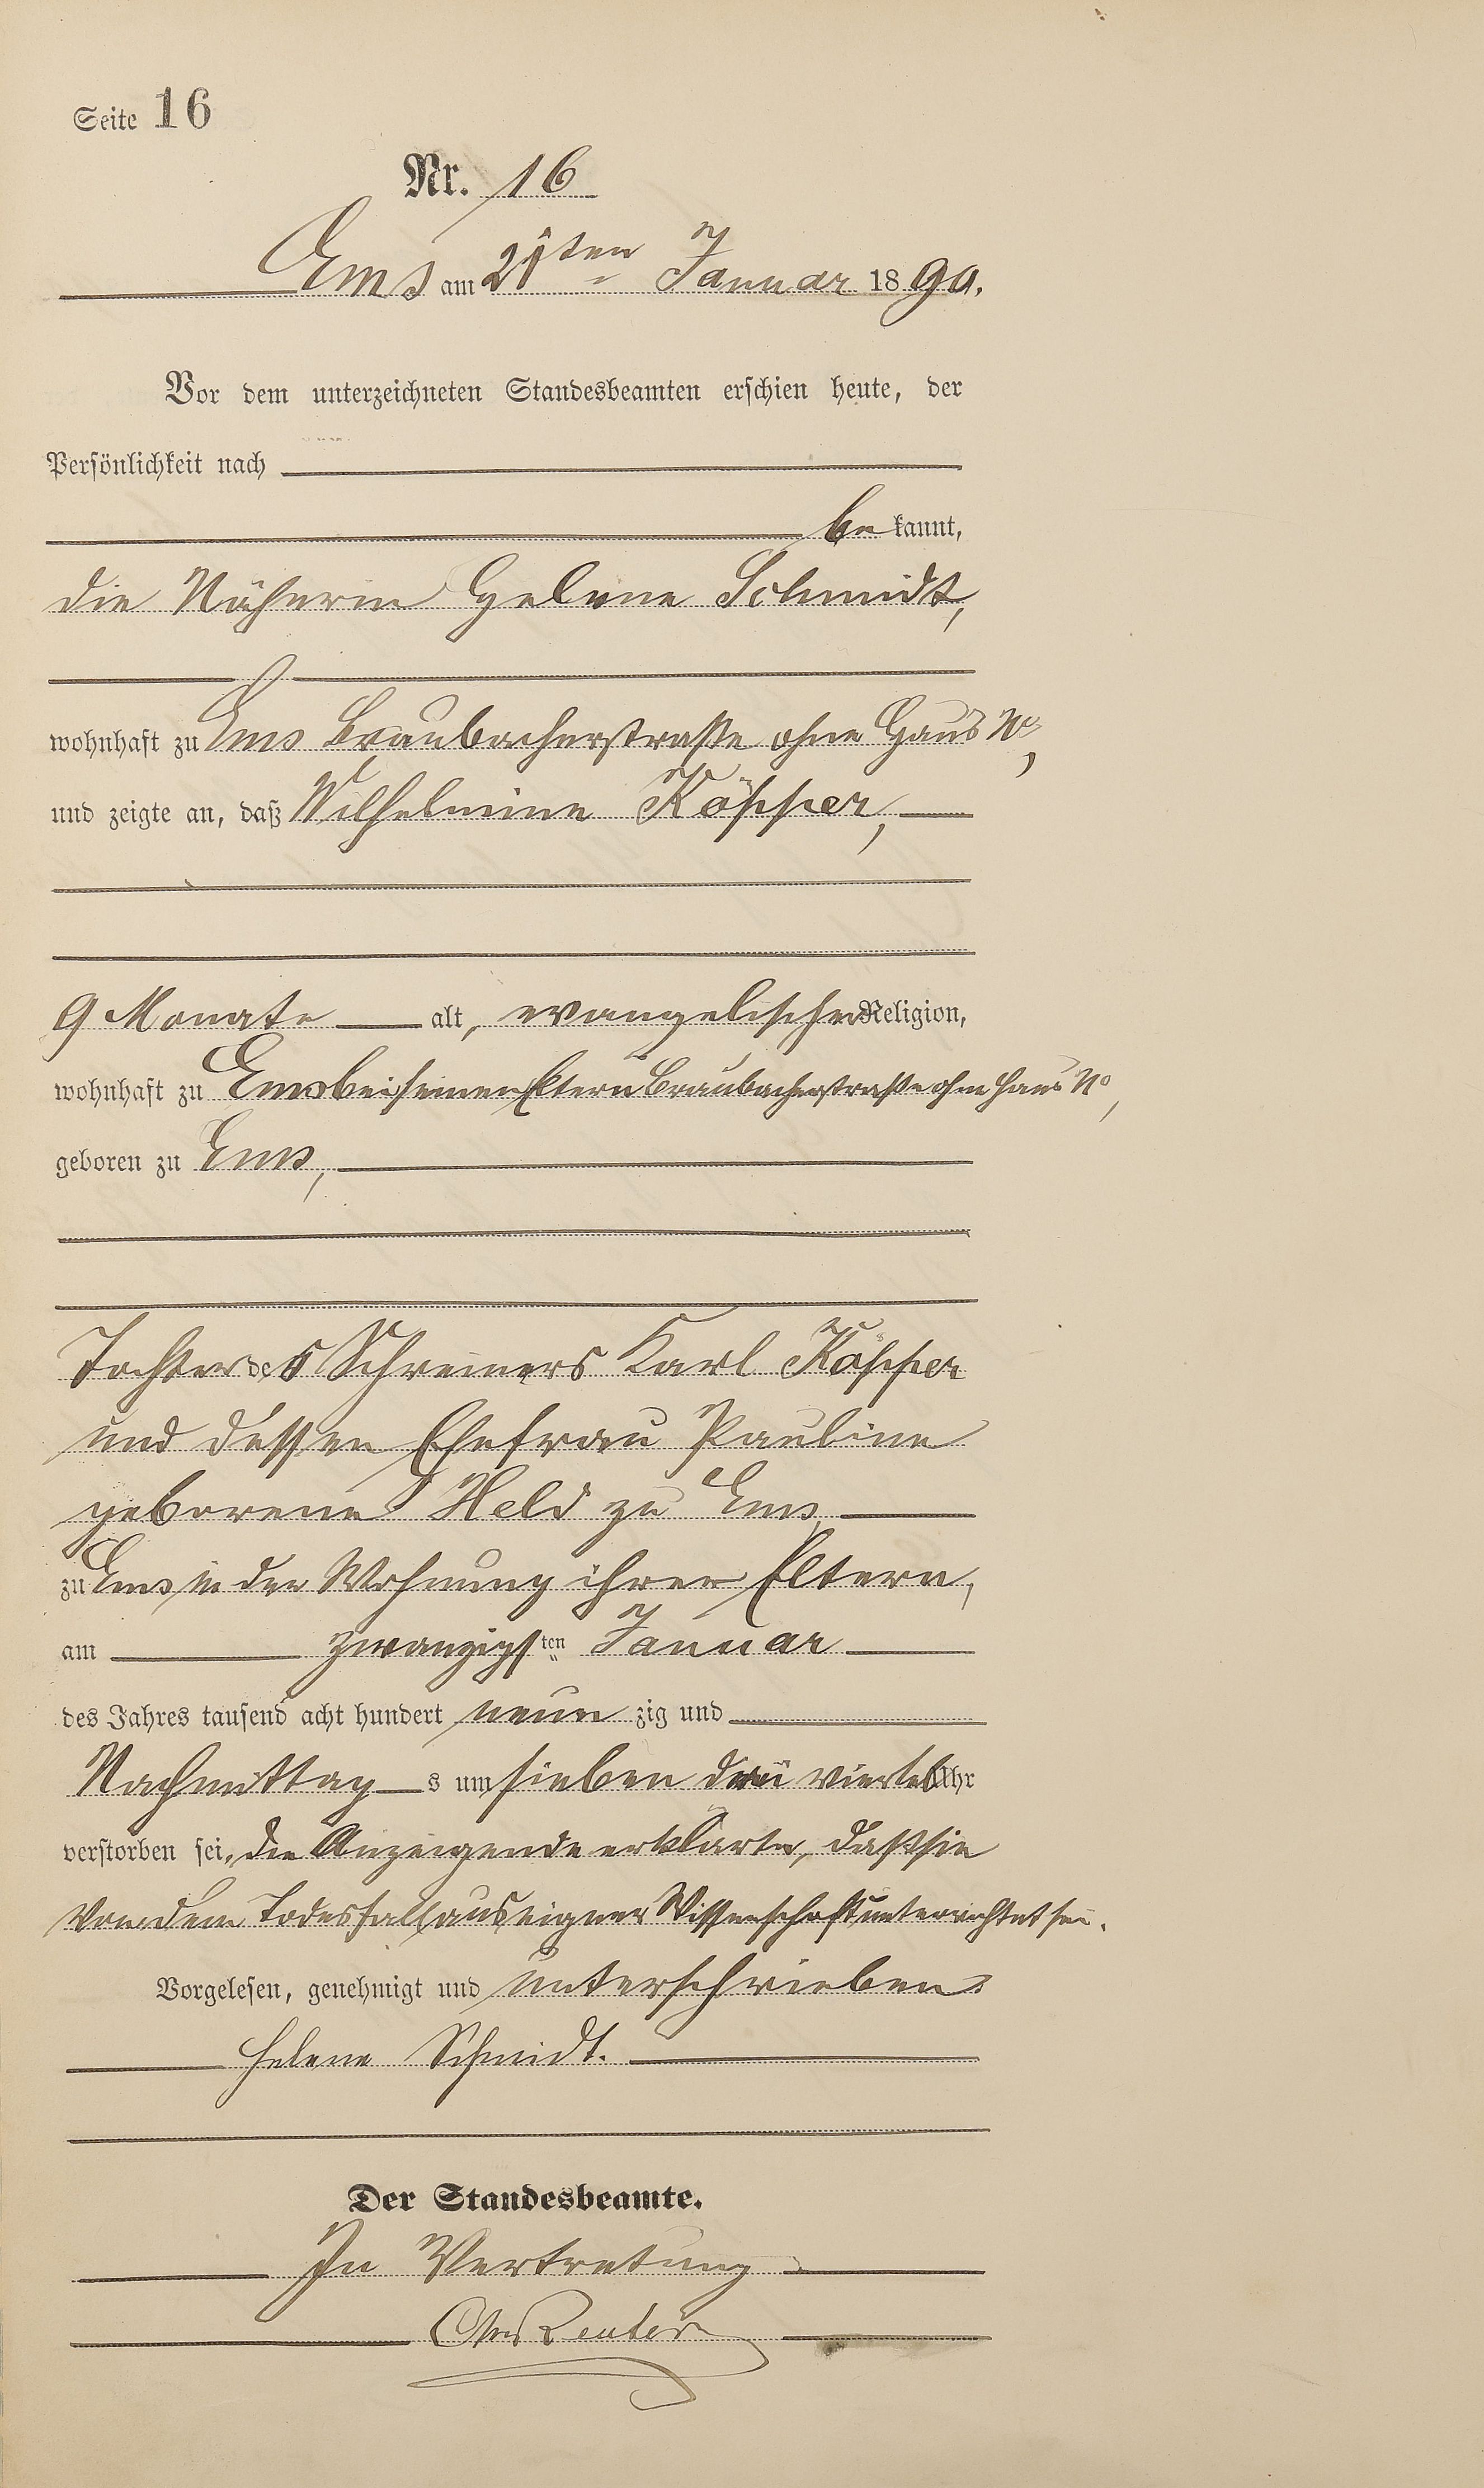 Seite 16
Nr. 16
Ems am 21ten Januar 1890.
Vor dem unterzeichneten Standesbeamten erschien heute, der
Persönlichkeit nach
bekannt,
die Näherin Helene Schmidt,
wohnhaft zu Ems Braubacherstraße ohne Haus No,
und zeigte an, daß Wilhelmine Köpper,
9 Monate alt, evangelischer Religion,
wohnhaft zu Ems bei seinen Eltern Braubacherstraße ohne Haus No,
geboren zu Ems,
Tochter des Schreiners Karl Köpper
und dessen Ehefrau Pauline
geborene Held zu Ems
zu Ems in der Wohnung ihrer Eltern,
am zwanzigsten Januar
des Jahres tausend acht hundert neunzig und
Nachmittags um sieben drei viertel Uhr
verstorben sei, die Anzeigende erklärte, daß sie
von dem Todesfall aus eigner Wissenschaft unterrichtet sei.
Vorgelesen, genehmigt und unterschrieben.
Helene Schmidt.
Der Standesbeamte.
In Vertretung
Reuter